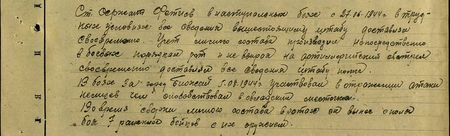 Ст. сержант Фетисов в наступательных боях с 27.06.1944г. в труд-
ных условиях все сведения вышестоящему штабу доставлял
своевременно. Учет личного состава производил непосредственно
в боевых порядках рот и не взирая на артиллерийский обстрел
своевременно доставлял все сведения штабу полка.
В боях за город 7.08.1944г. участвовал в отражении атаки
немцев чем способствовал в овладении местечком.
Во время сверки личного состава в ротах он вынес с поля
боя 7 раненых бойцов с их оружием.